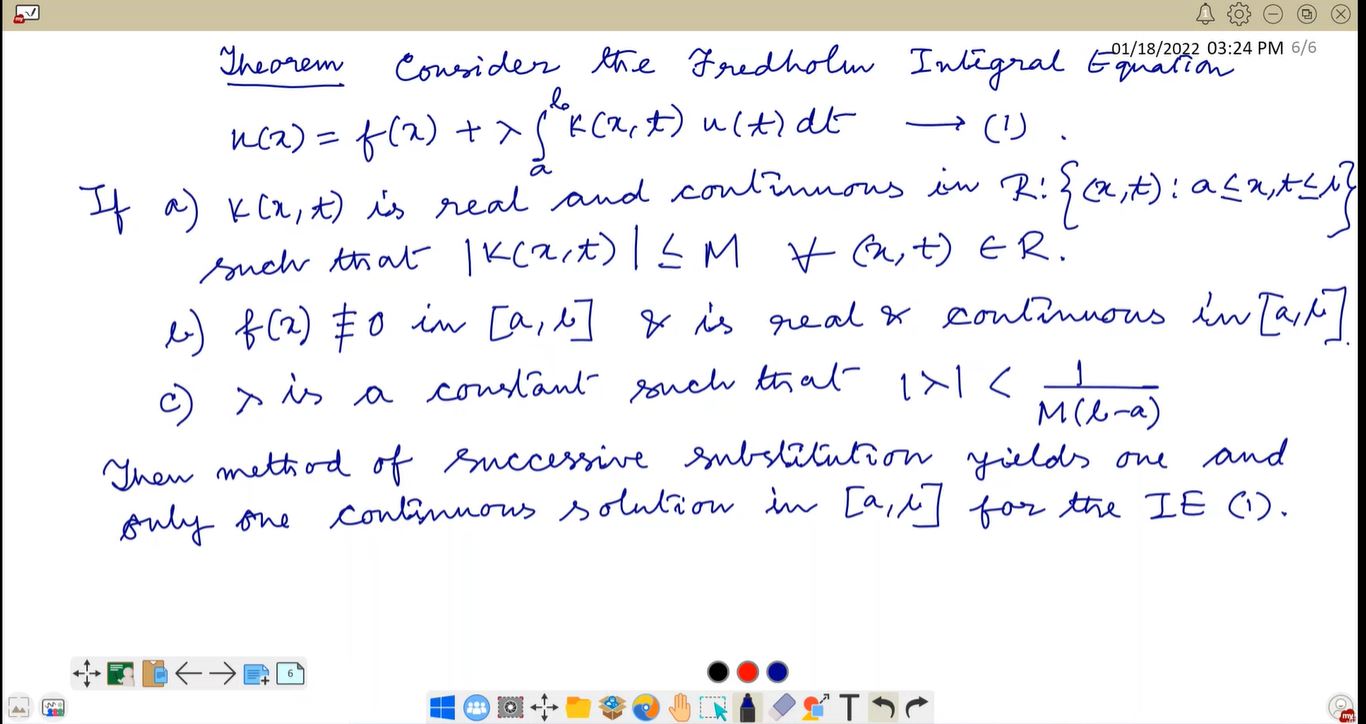 01/18/2022 03:24 PM 6/6
Theorem Consider the Fredholm Integral Equation
u(x) = f(x) + λ ∫_a^b K(x,t) u(t) dt → (1) .
If a) K(x,t) is real and continuous in R: {(x,t): a ≤ x,t ≤ b}
such that |K(x,t)| ≤ M ∀ (x,t) ∈ R.
b) f(x) ≢ 0 in [a,b] & is real & continuous in [a,b].
c) λ is a constant such that |λ| < 1/M(b-a)
Then method of successive substitution yields one and
only one continuous solution in [a,b] for the IE (1).
6